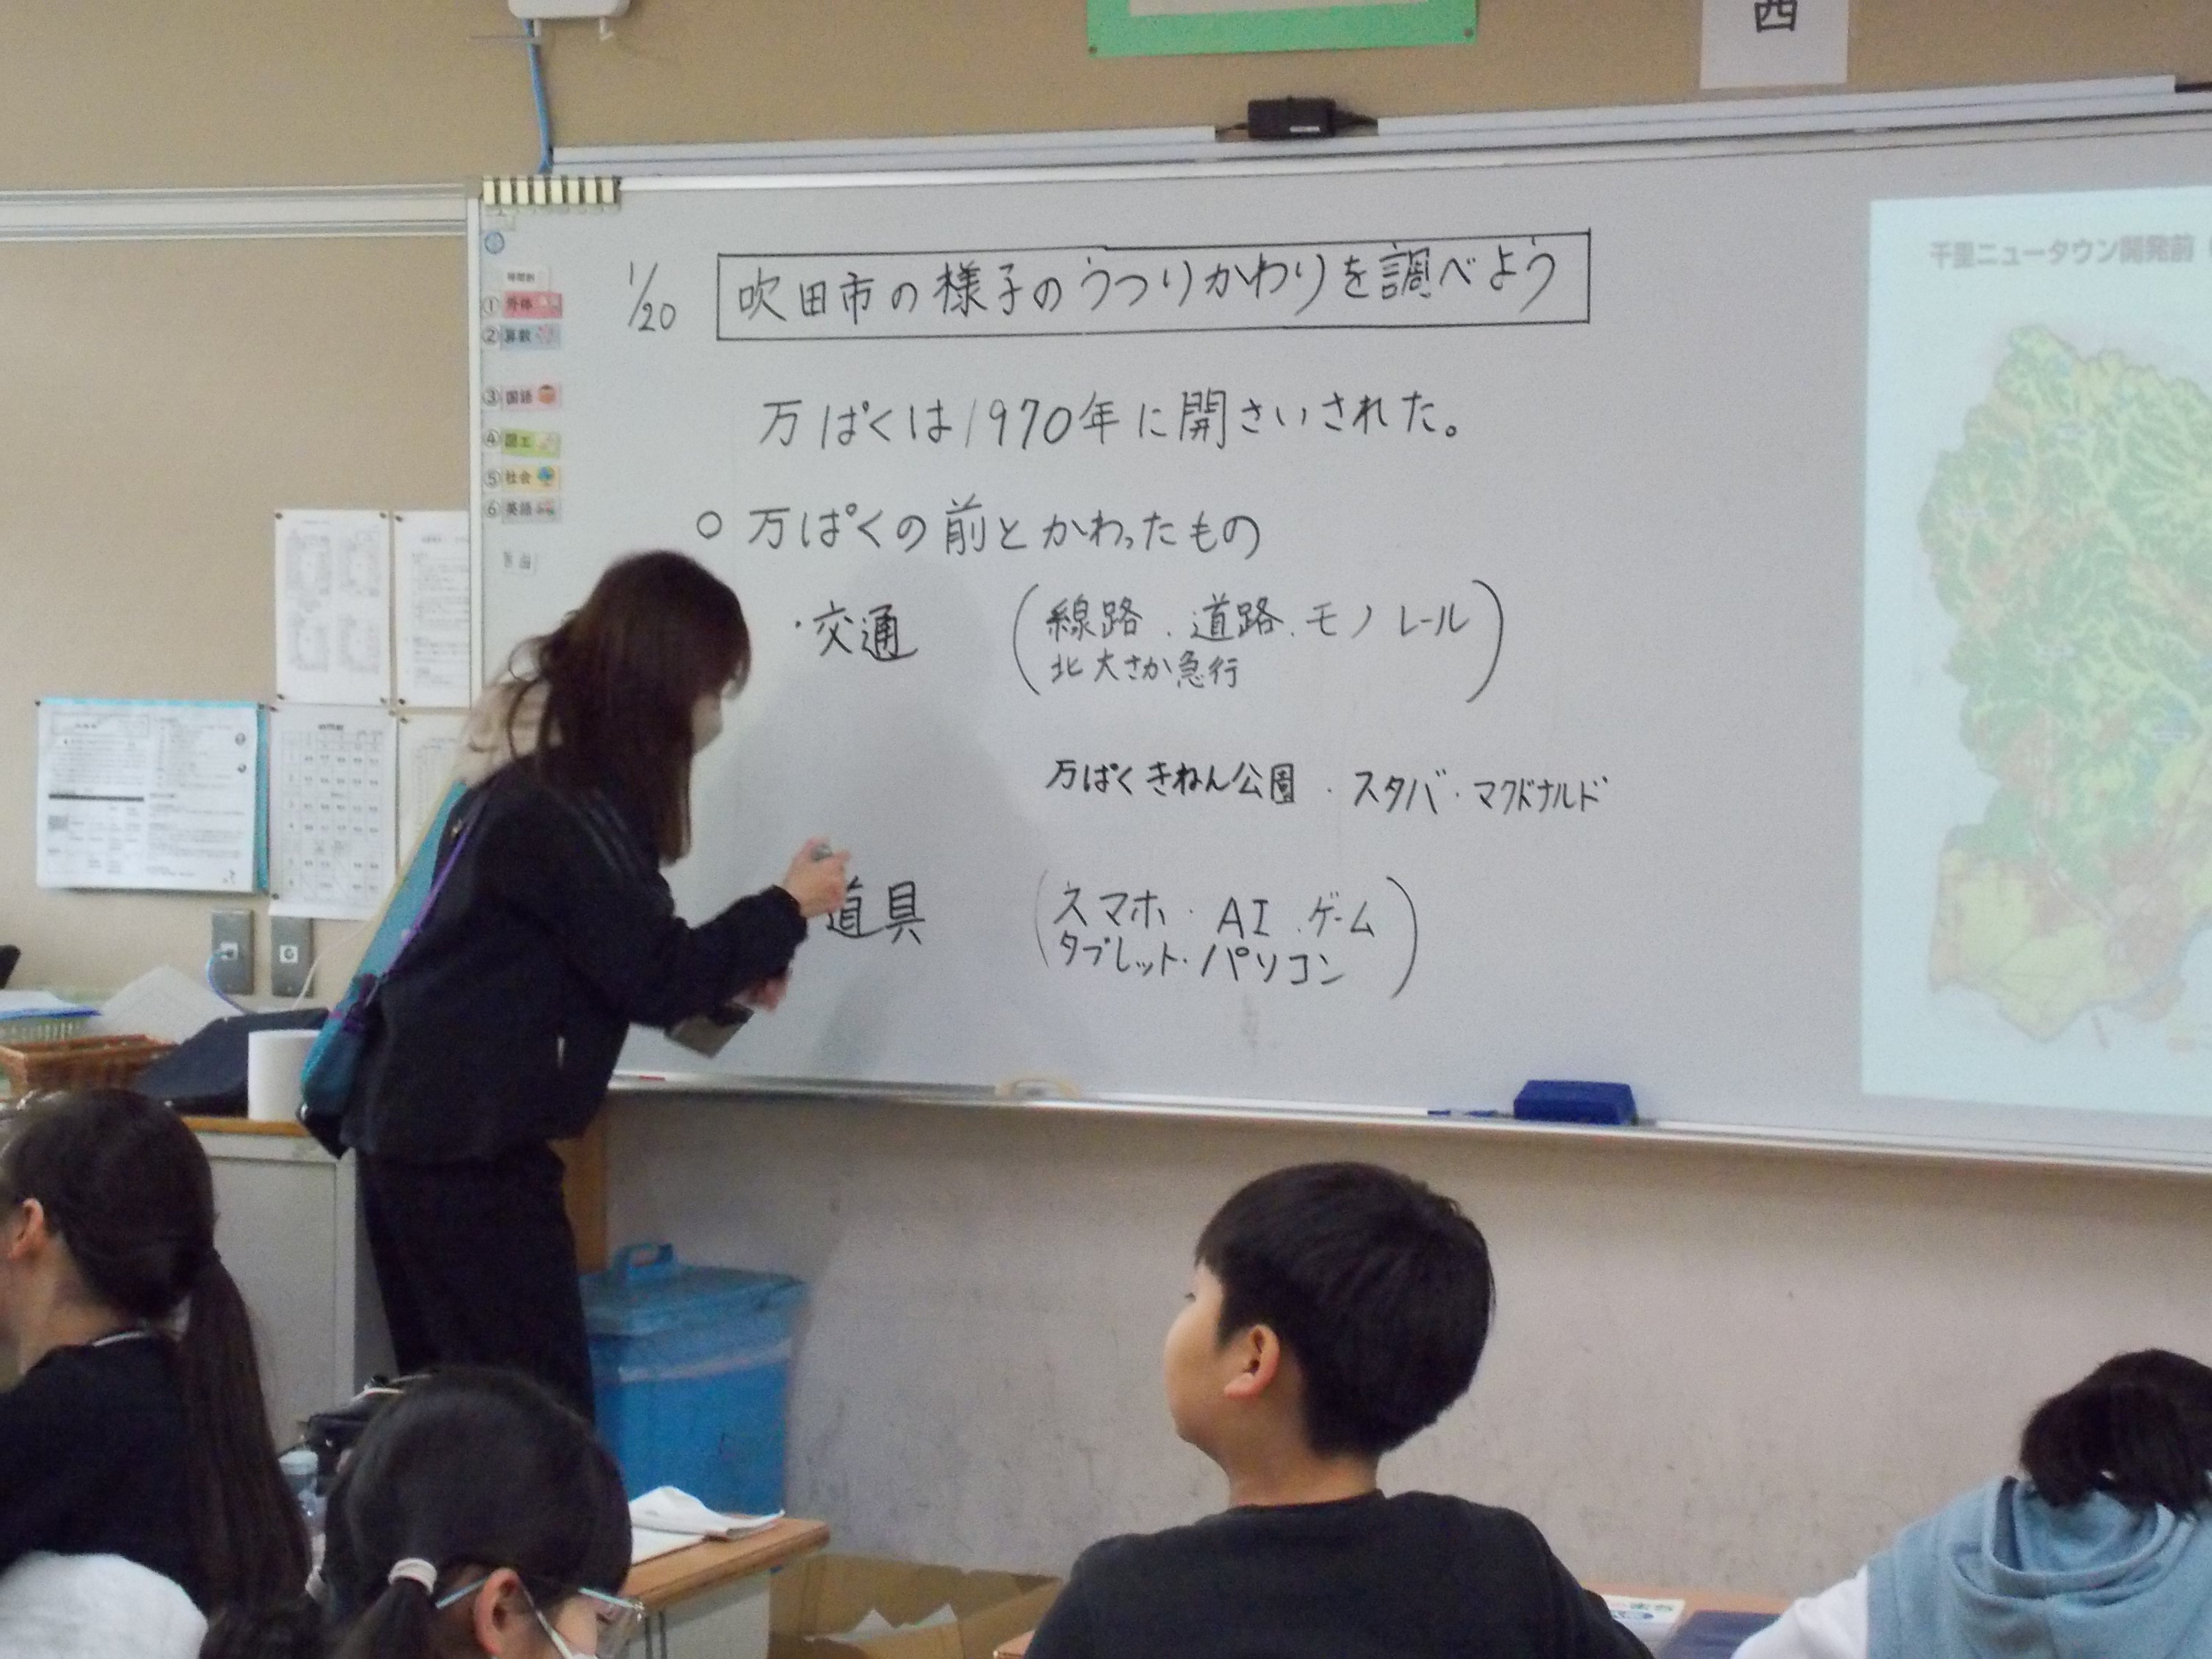 西
1/20
吹田市の様子のうつりかわりを調べよう
千里ニュータウン開発前
時間割
①外体
②算数
③国語
④図工
⑤社会
⑥英語
万ぱくは1970年に開さいされた。
○万ぱくの前とかわったもの
・交通 (線路・道路・モノレール
北大さか急行)
万ぱくきねん公園・スタバ・マクドナルド
道具 (スマホ・AI・ゲーム
タブレット・パソコン)